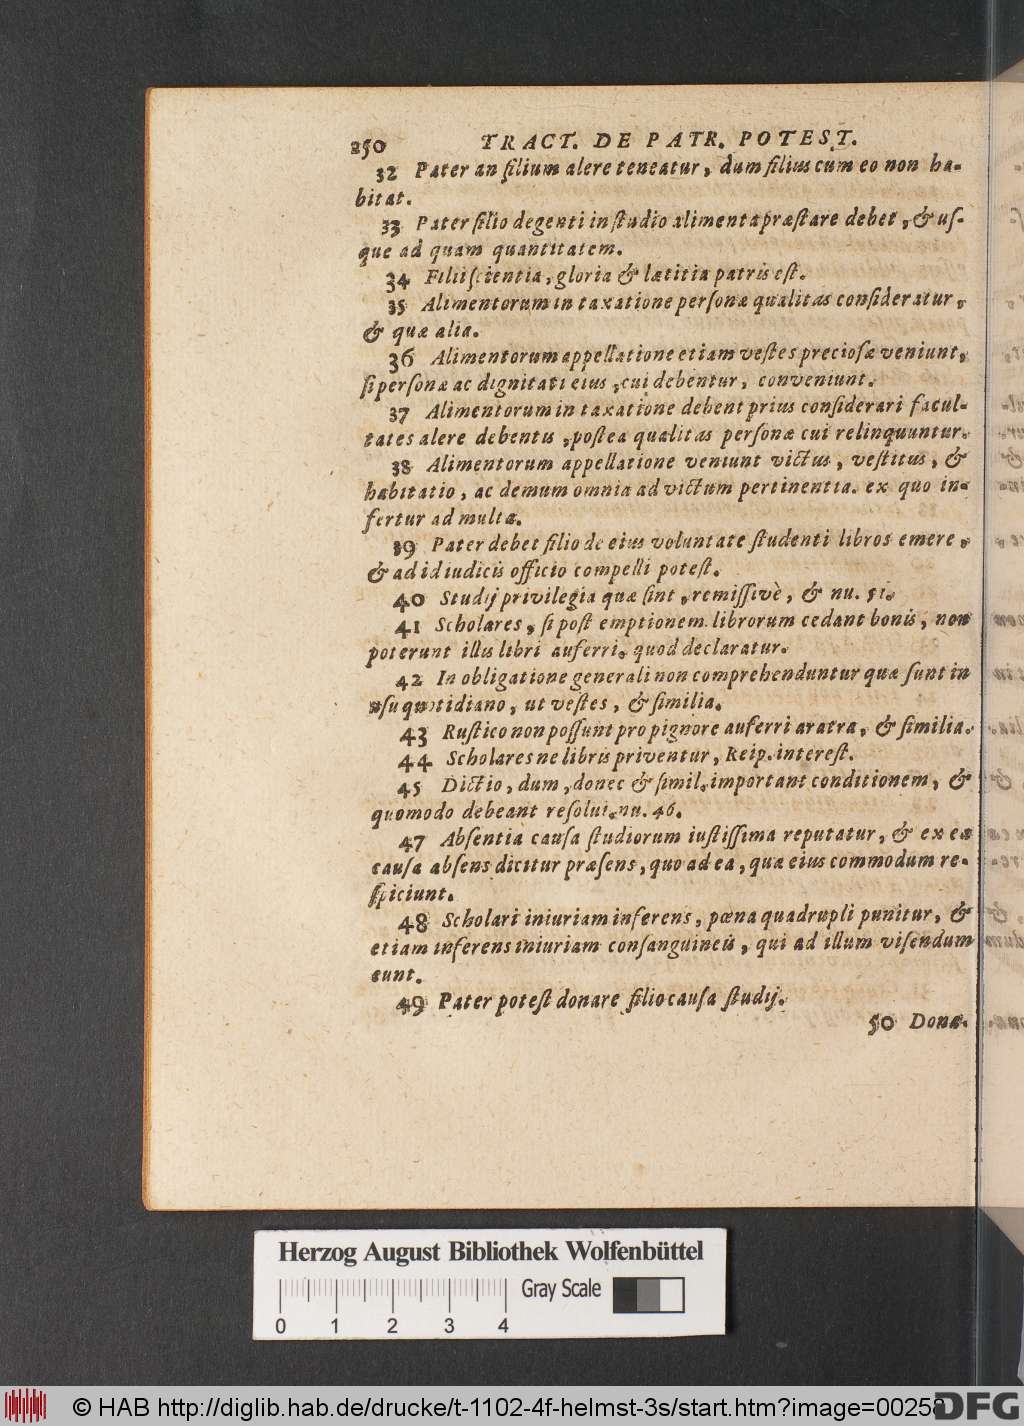 250 TRACT. DE PATR. POTEST.
32 Pater an filium alere teneatur, dum filius cum eo non ha-
bitat.
33 Pater filio degenti in studio alimenta præstare debet, & us-
que ad quam quantitatem.
34 Filii scientia, gloria & lætitia patris est.
35 Alimentorum in taxatione personæ qualitas consideratur,
& quæ alia.
36 Alimentorum appellatione etiam vestes preciosæ veniunt,
si personæ ac dignitati eius, cui debentur, conveniunt.
37 Alimentorum in taxatione debent prius considerari facul-
tates alere debentis, postea qualitas personæ cui relinquuntur.
38 Alimentorum appellatione veniunt victus, vestitus, &
habitatio, ac demum omnia ad victum pertinentia. ex quo in-
fertur ad multa.
39 Pater debet filio de eius voluntate studenti libros emere,
& ad id iudicis officio compelli potest.
40 Studij privilegia quæ sint, remissivè, & nu. 51.
41 Scholares, si post emptionem librorum cedant bonis, non
poterunt illis libri auferri. quod declaratur.
42 In obligatione generali non comprehenduntur quæ sunt in
usu quotidiano, ut vestes, & similia.
43 Rustico non possunt pro pignore auferri aratra, & similia.
44 Scholares ne libris priventur, Reip. interest.
45 Dictio, dum, donec & simil. important conditionem, &
quomodo debeant resolui. nu. 46.
47 Absentia causa studiorum iustissima reputatur, & ex ea
causa absens dicitur præsens, quo ad ea, quæ eius commodum re-
spiciunt.
48 Scholari iniuriam inferens, pœna quadrupli punitur, &
etiam inferens iniuriam consanguineis, qui ad illum visendum
eunt.
49 Pater potest donare filio causa studij.
50 Dona-
Herzog August Bibliothek Wolfenbüttel
Gray Scale
0 1 2 3 4
© HAB http://diglib.hab.de/drucke/t-1102-4f-helmst-3s/start.htm?image=00258
DFG